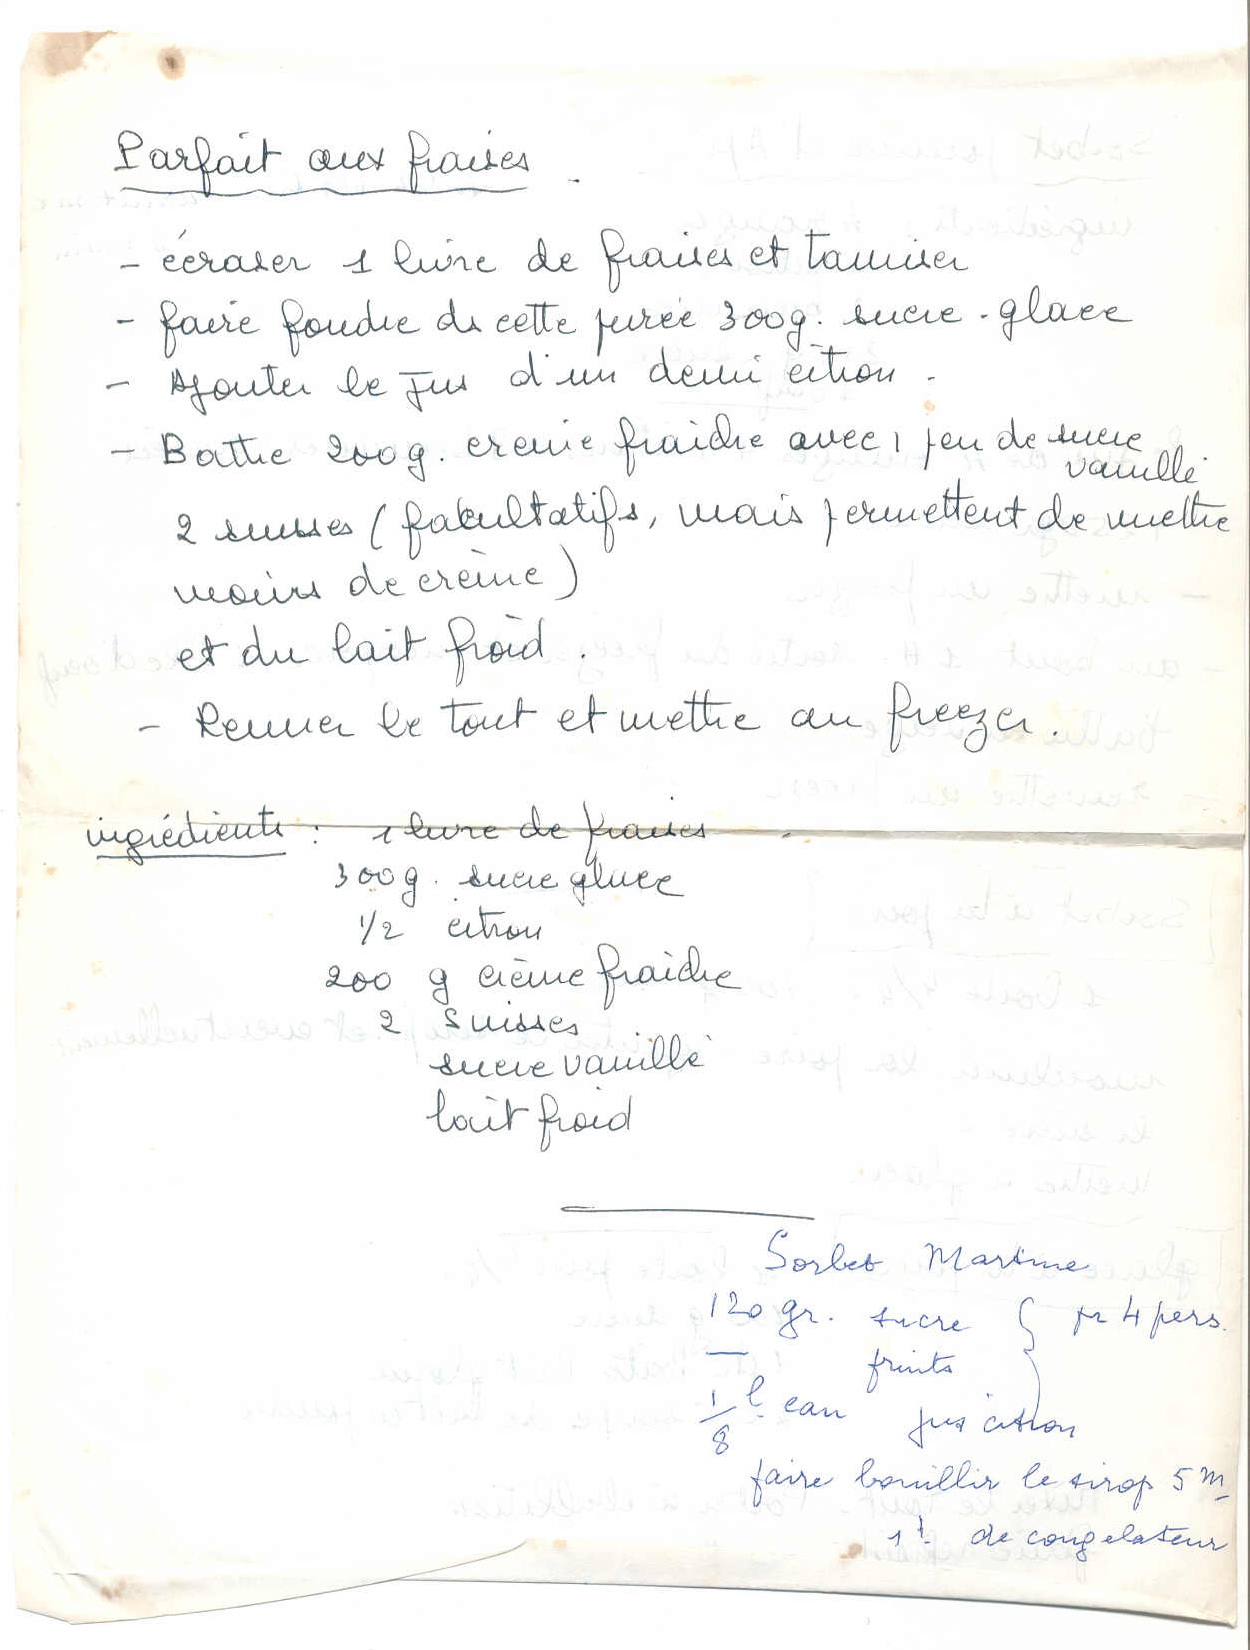 Parfait aux fraises.
- écraser 1 livre de fraises et tamiser
- faire fondre ds cette purée 300g. sucre-glace
- Ajouter le jus d'un demi citron.
- Battre 200g. creme fraîche avec 1 peu de sucre
vanillé
2 suisses (facultatifs, mais permettent de mettre
moins de crème)
et du lait froid.
- Remuer le tout et mettre au freezer.
ingrédients : 1 livre de fraises
300g. sucre glace
1/2 citron
200 g crème fraîche
2 Suisses
sucre vanillé
lait froid
Sorbet Martine
120 gr. sucre } pr 4 pers.
fruits
1/8 l. eau jus citron
faire bouillir le sirop 5 m
de congelateur